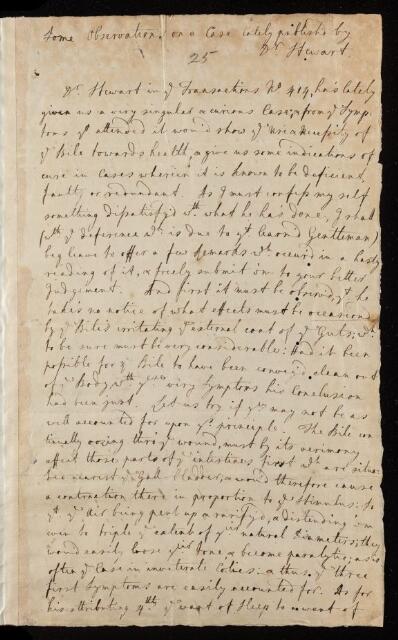 Some Observations on a Case lately publish'd by
Dr. Stewart
25
Dr. Stewart in ye Transactions No 414, has lately
given us a very singular & curious Case; & from ye Symp-
toms yt attended it wou'd show ye use & necessity of
ye Bile towards health, & give us some indications of
cure in Cases wherein it is known to be deficient,
faulty or redundant. As I must confess my self
something dissatisfy'd wth what he has done, I shall
(wth ye deference wch is due to yt learn'd Gentleman)
beg leave to offer a few Remarks wch occurr'd in a hasty
reading of it, & freely submit 'em to your better
Judgement. And first it must be observ'd, yt he
takes no notice of what effects must be occasion'd
by ye Bile's irritating ye external coat of ye Guts; wch
to be sure must be very considerable: Had it been
possible for ye Bile to have been convey'd clean out
of ye Body wth these very Symptoms his Conclusion
had been just. Let us try if they may not be as
well accounted for upon ys principle. The Bile con-
tinually oozing thro' ye wound, must by its acrimony
affect those parts of ye intestines first wch are situa-
ted nearest ye Gall bladder, & wou'd therefore cause
a contraction there in proportion to ye Stimulus: So
yt ye air being pent up & rarify'd, & distending 'em
even to triple ye extent of yeir natural diameters; they
wou'd easily loose yeir Tone & become paralytic, as is
often ye Case in inveterate Colics: & thus ye three
first Symptoms are easily accounted for. As for
his attributing ye 4th ye want of Sleep to a want of